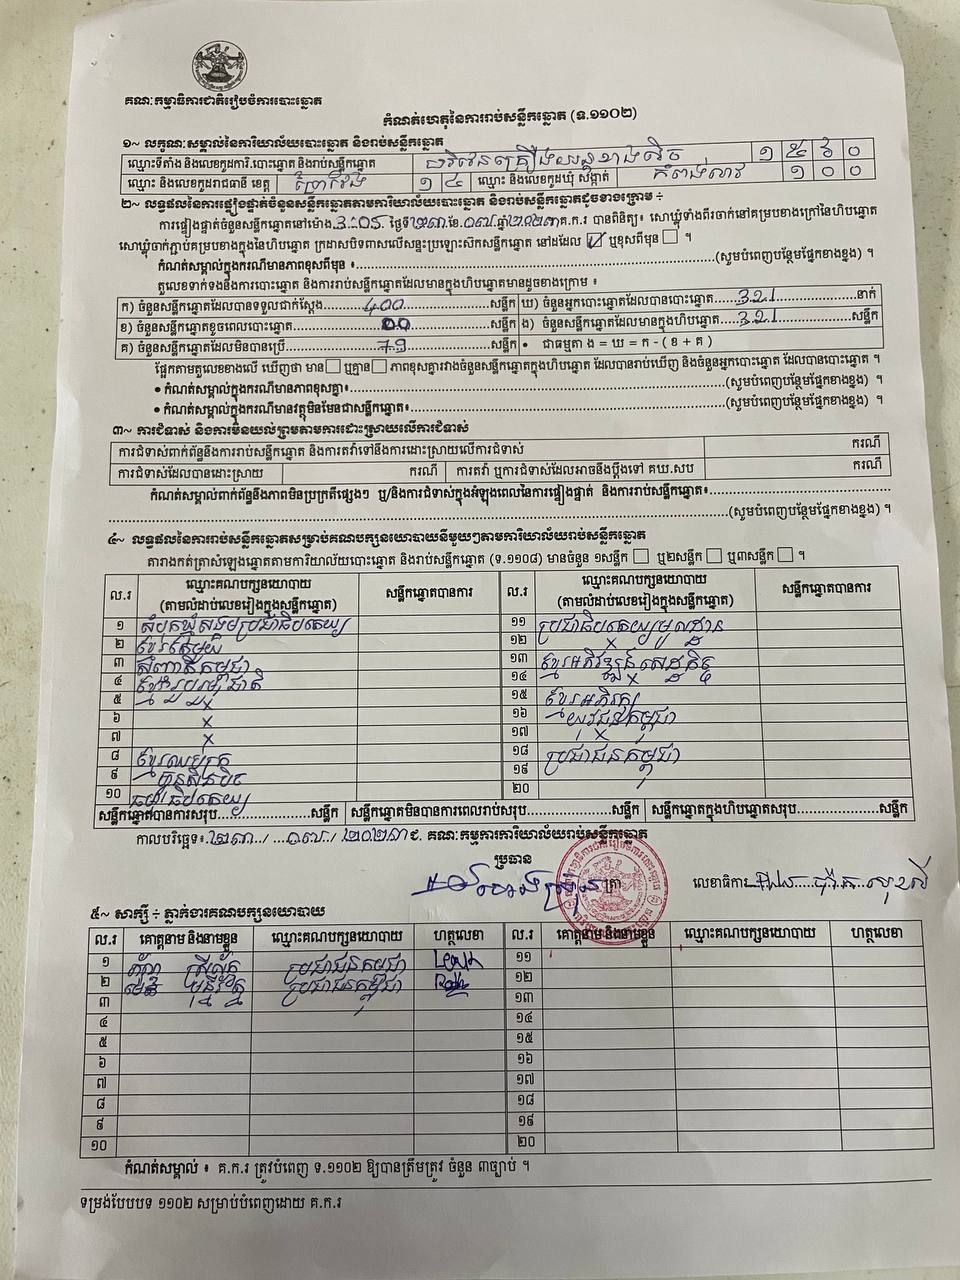 គណៈកម្មាធិការជាតិរៀបចំការបោះឆ្នោត
កំណត់ហេតុនៃការរាប់សន្លឹកឆ្នោត (ទ.១១០២)
១~ លក្ខណៈសម្គាល់នៃការិយាល័យបោះឆ្នោត និងរាប់សន្លឹកឆ្នោត
ឈ្មោះទីតាំង និងលេខកូដការិ.បោះឆ្នោត និងរាប់សន្លឹកឆ្នោត ១ ៥ ៦ ០
ឈ្មោះ និងលេខកូដរាជធានី ខេត្ត ព្រៃវែង ១ ៤ ឈ្មោះ និងលេខកូដឃុំ សង្កាត់ កំពង់លាវ ១ ០ ០
២~ លទ្ធផលនៃការផ្ទៀងផ្ទាត់ចំនួនសន្លឹកឆ្នោតតាមការិយាល័យបោះឆ្នោត និងរាប់សន្លឹកឆ្នោតដូចខាងក្រោម ÷
ការផ្ទៀងផ្ទាត់ចំនួនសន្លឹកឆ្នោតនៅម៉ោង 3:05 ថ្ងៃទី ២៣ ខែ ០៧ ឆ្នាំ ២០២៣ គ.ក.រ បានពិនិត្យ៖ សោឃ្លុំទាំងពីរចាក់នៅគម្របខាងក្រៅនៃហិបឆ្នោត
សោឃ្លុំចាក់ភ្ជាប់គម្របខាងក្នុងនៃហិបឆ្នោត ក្រដាសបិទពាសលើសន្ទះប្រឡោះសិកសន្លឹកឆ្នោត នៅដដែល ឬខុសពីមុន ។
កំណត់សម្គាល់ក្នុងករណីមានភាពខុសពីមុន ៖ (សូមបំពេញបន្ថែមផ្នែកខាងខ្នង) ។
តួលេខទាក់ទងនឹងការបោះឆ្នោត និងការរាប់សន្លឹកឆ្នោតដែលមានក្នុងហិបឆ្នោតមានដូចខាងក្រោម ៖
ក) ចំនួនសន្លឹកឆ្នោតដែលបានទទួលជាក់ស្តែង 400 សន្លឹក ឃ) ចំនួនអ្នកបោះឆ្នោតដែលបានបោះឆ្នោត 321 នាក់
ខ) ចំនួនសន្លឹកឆ្នោតខូចពេលបោះឆ្នោត 00 សន្លឹក ង) ចំនួនសន្លឹកឆ្នោតដែលមានក្នុងហិបឆ្នោត 321 សន្លឹក
គ) ចំនួនសន្លឹកឆ្នោតដែលមិនបានប្រើ 79 សន្លឹក • ជាធម្មតា ង = ឃ = ក - ( ខ + គ )
ផ្អែកតាមតួលេខខាងលើ ឃើញថា មាន ឬគ្មាន ភាពខុសគ្នារវាងចំនួនសន្លឹកឆ្នោតក្នុងហិបឆ្នោត ដែលបានរាប់ឃើញ និងចំនួនអ្នកបោះឆ្នោត ដែលបានបោះឆ្នោត ។
• កំណត់សម្គាល់ក្នុងករណីមានភាពខុសគ្នា៖ (សូមបំពេញបន្ថែមផ្នែកខាងខ្នង) ។
• កំណត់សម្គាល់ក្នុងករណីមានវត្ថុមិនមែនជាសន្លឹកឆ្នោត៖ (សូមបំពេញបន្ថែមផ្នែកខាងខ្នង) ។
៣~ ការជំទាស់ និងការមិនយល់ព្រមតាមការដោះស្រាយលើការជំទាស់
ការជំទាស់ពាក់ព័ន្ធនឹងការរាប់សន្លឹកឆ្នោត និងការតវ៉ាទៅនឹងការដោះស្រាយលើការជំទាស់ ករណី
ការជំទាស់ដែលបានដោះស្រាយ ករណី ការតវ៉ា ឬការជំទាស់ដែលអាចនឹងប្តឹងទៅ គឃ.សប ករណី
កំណត់សម្គាល់ពាក់ព័ន្ធនឹងភាពមិនប្រក្រតីផ្សេងៗ ឬ/និងការជំទាស់ក្នុងអំឡុងពេលនៃការផ្ទៀងផ្ទាត់ និងការរាប់សន្លឹកឆ្នោត៖
(សូមបំពេញបន្ថែមផ្នែកខាងខ្នង) ។
៤~ លទ្ធផលនៃការរាប់សន្លឹកឆ្នោតសម្រាប់គណបក្សនយោបាយនីមួយៗតាមការិយាល័យរាប់សន្លឹកឆ្នោត
តារាងកត់ត្រាសំឡេងឆ្នោតតាមការិយាល័យបោះឆ្នោត និងរាប់សន្លឹកឆ្នោត (ទ.១១០៨) មានចំនួន ១សន្លឹក ឬ២សន្លឹក ឬ៣សន្លឹក ។
ល.រ ឈ្មោះគណបក្សនយោបាយ (តាមលំដាប់លេខរៀងក្នុងសន្លឹកឆ្នោត) សន្លឹកឆ្នោតបានការ ល.រ ឈ្មោះគណបក្សនយោបាយ (តាមលំដាប់លេខរៀងក្នុងសន្លឹកឆ្នោត) សន្លឹកឆ្នោតបានការ
១ សំបុកឃ្មុំសង្គមប្រជាធិបតេយ្យ ១១ ប្រជាធិបតេយ្យមូលដ្ឋាន
២ ខ្មែរតែមួយ ១២ x
៣ សញ្ជាតិកម្ពុជា ១៣ ខ្មែរអភិវឌ្ឍន៍សេដ្ឋកិច្ច
៤ ខ្មែររួបរួមជាតិ ១៤ x
៥ x ១៥ ខ្មែរអភិរក្ស
៦ x ១៦ យុវជនកម្ពុជា
៧ x ១៧ x
៨ ១៨ ប្រជាជនកម្ពុជា
៩ ហ្វ៊ុនស៊ិនប៉ិច ១៩
១០ ធម្មាធិបតេយ្យ ២០
សន្លឹកឆ្នោតបានការសរុប សន្លឹក សន្លឹកឆ្នោតមិនបានការពេលរាប់សរុប សន្លឹក សន្លឹកឆ្នោតក្នុងហិបឆ្នោតសរុប សន្លឹក
កាលបរិច្ឆេទ៖ ២៣ / ០៧ / ២០២៣ ជ. គណៈកម្មការការិយាល័យរាប់សន្លឹកឆ្នោត
ប្រធាន
ត្រា លេខាធិការ
៥~ សាក្សី ÷ ភ្នាក់ងារគណបក្សនយោបាយ
ល.រ គោត្តនាម និងនាមខ្លួន ឈ្មោះគណបក្សនយោបាយ ហត្ថលេខា ល.រ គោត្តនាម និងនាមខ្លួន ឈ្មោះគណបក្សនយោបាយ ហត្ថលេខា
១ ប្រជាជនកម្ពុជា ១១
២ ប្រជាជនកម្ពុជា ១២
៣ ១៣
៤ ១៤
៥ ១៥
៦ ១៦
៧ ១៧
៨ ១៨
៩ ១៩
១០ ២០
កំណត់សម្គាល់ ៖ គ.ក.រ ត្រូវបំពេញ ទ.១១០២ ឱ្យបានត្រឹមត្រូវ ចំនួន ៣ច្បាប់ ។
ទម្រង់បែបបទ ១១០២ សម្រាប់បំពេញដោយ គ.ក.រ